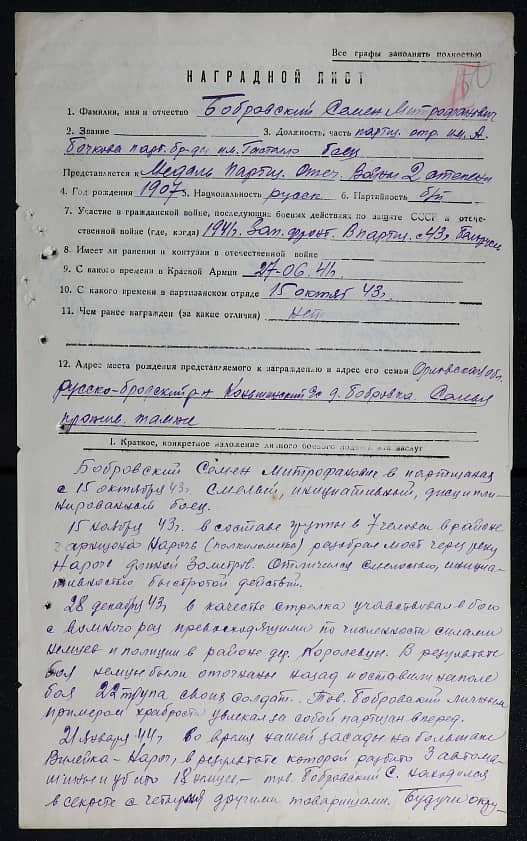 Все графы заполнять полностью
150
НАГРАДНОЙ ЛИСТ
1. Фамилия, имя и отчество Бобровский Семен Митрофанович
2. Звание 3. Должность, часть партиз. отр. им. А.
Бочкова парт. бр-ди им. Гастелло боец
Представляется к Медаль Партиз. Отеч. Войны 2 степени
4. Год рождения 1907 5. Национальность русск 6. Партийность б/п
7. Участие в гражданской войне, последующих боевых действиях по защите СССР и отече-
ственной войне (где, когда) 1941г. Зап. фронт. В партиз. с 43г.
8. Имеет ли ранения и контузии в отечественной войне
9. С какого времени в Красной Армии 27-06.41г.
10. С какого времени в партизанском отряде 15 октяб 43г.
11. Чем ранее награжден (за какие отличия) нет
12. Адрес места рождения представляемого к награждению и адрес его семьи Орловская обл.
Русско-бродский р-н с/с д. Бобровка. Семья
прожив. там же
I. Краткое, конкретное изложение личного боевого подвига или заслуг
Бобровский Семен Митрофанович в партизанах
с 15 октября 43г. Смелый, инициативный, дисципли-
нированный боец.
15 ноября 43г. в составе группы в 7 человек в районе
гарнизона Нарочь (полкилометра) разобрал мост через реку
Нарочь длиной 30 метров. Отличился смелостью, инициа-
тивностью, быстротой действий.
28 декабря 43г. в качестве стрелка участвовал в бою
с во много раз превосходящими по численности силами
немцев и полиции в районе дер. Королевцы. В результате
боя немцы были отогнаны назад и оставили на поле
боя 22 трупа своих солдат. Тов. Бобровский личным
примером храброста увлекал за собой партизан вперед.
21 января 44г. во время нашей засады на большаке
Вилейка-Нароч, в результате которой разбито 3 автома-
шины и убито 18 немцев – тов. Бобровский С. находился
в секрете с четырмя другими товарищами. Будучи окру-